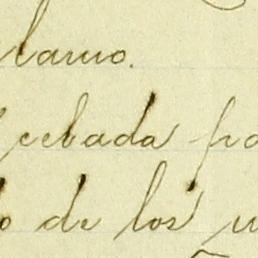 lamo.
cebada pa
o de los